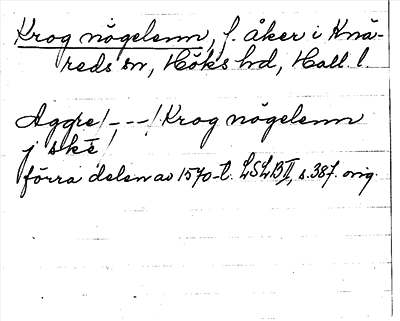 Krog nögelenn, f. åker i Knä-
reds sn, Höks hd, Hall l.
Aggre /---/ Krog nögelenn
j skē
förra delen av 1570-t. LSLB II, s. 387. orig.